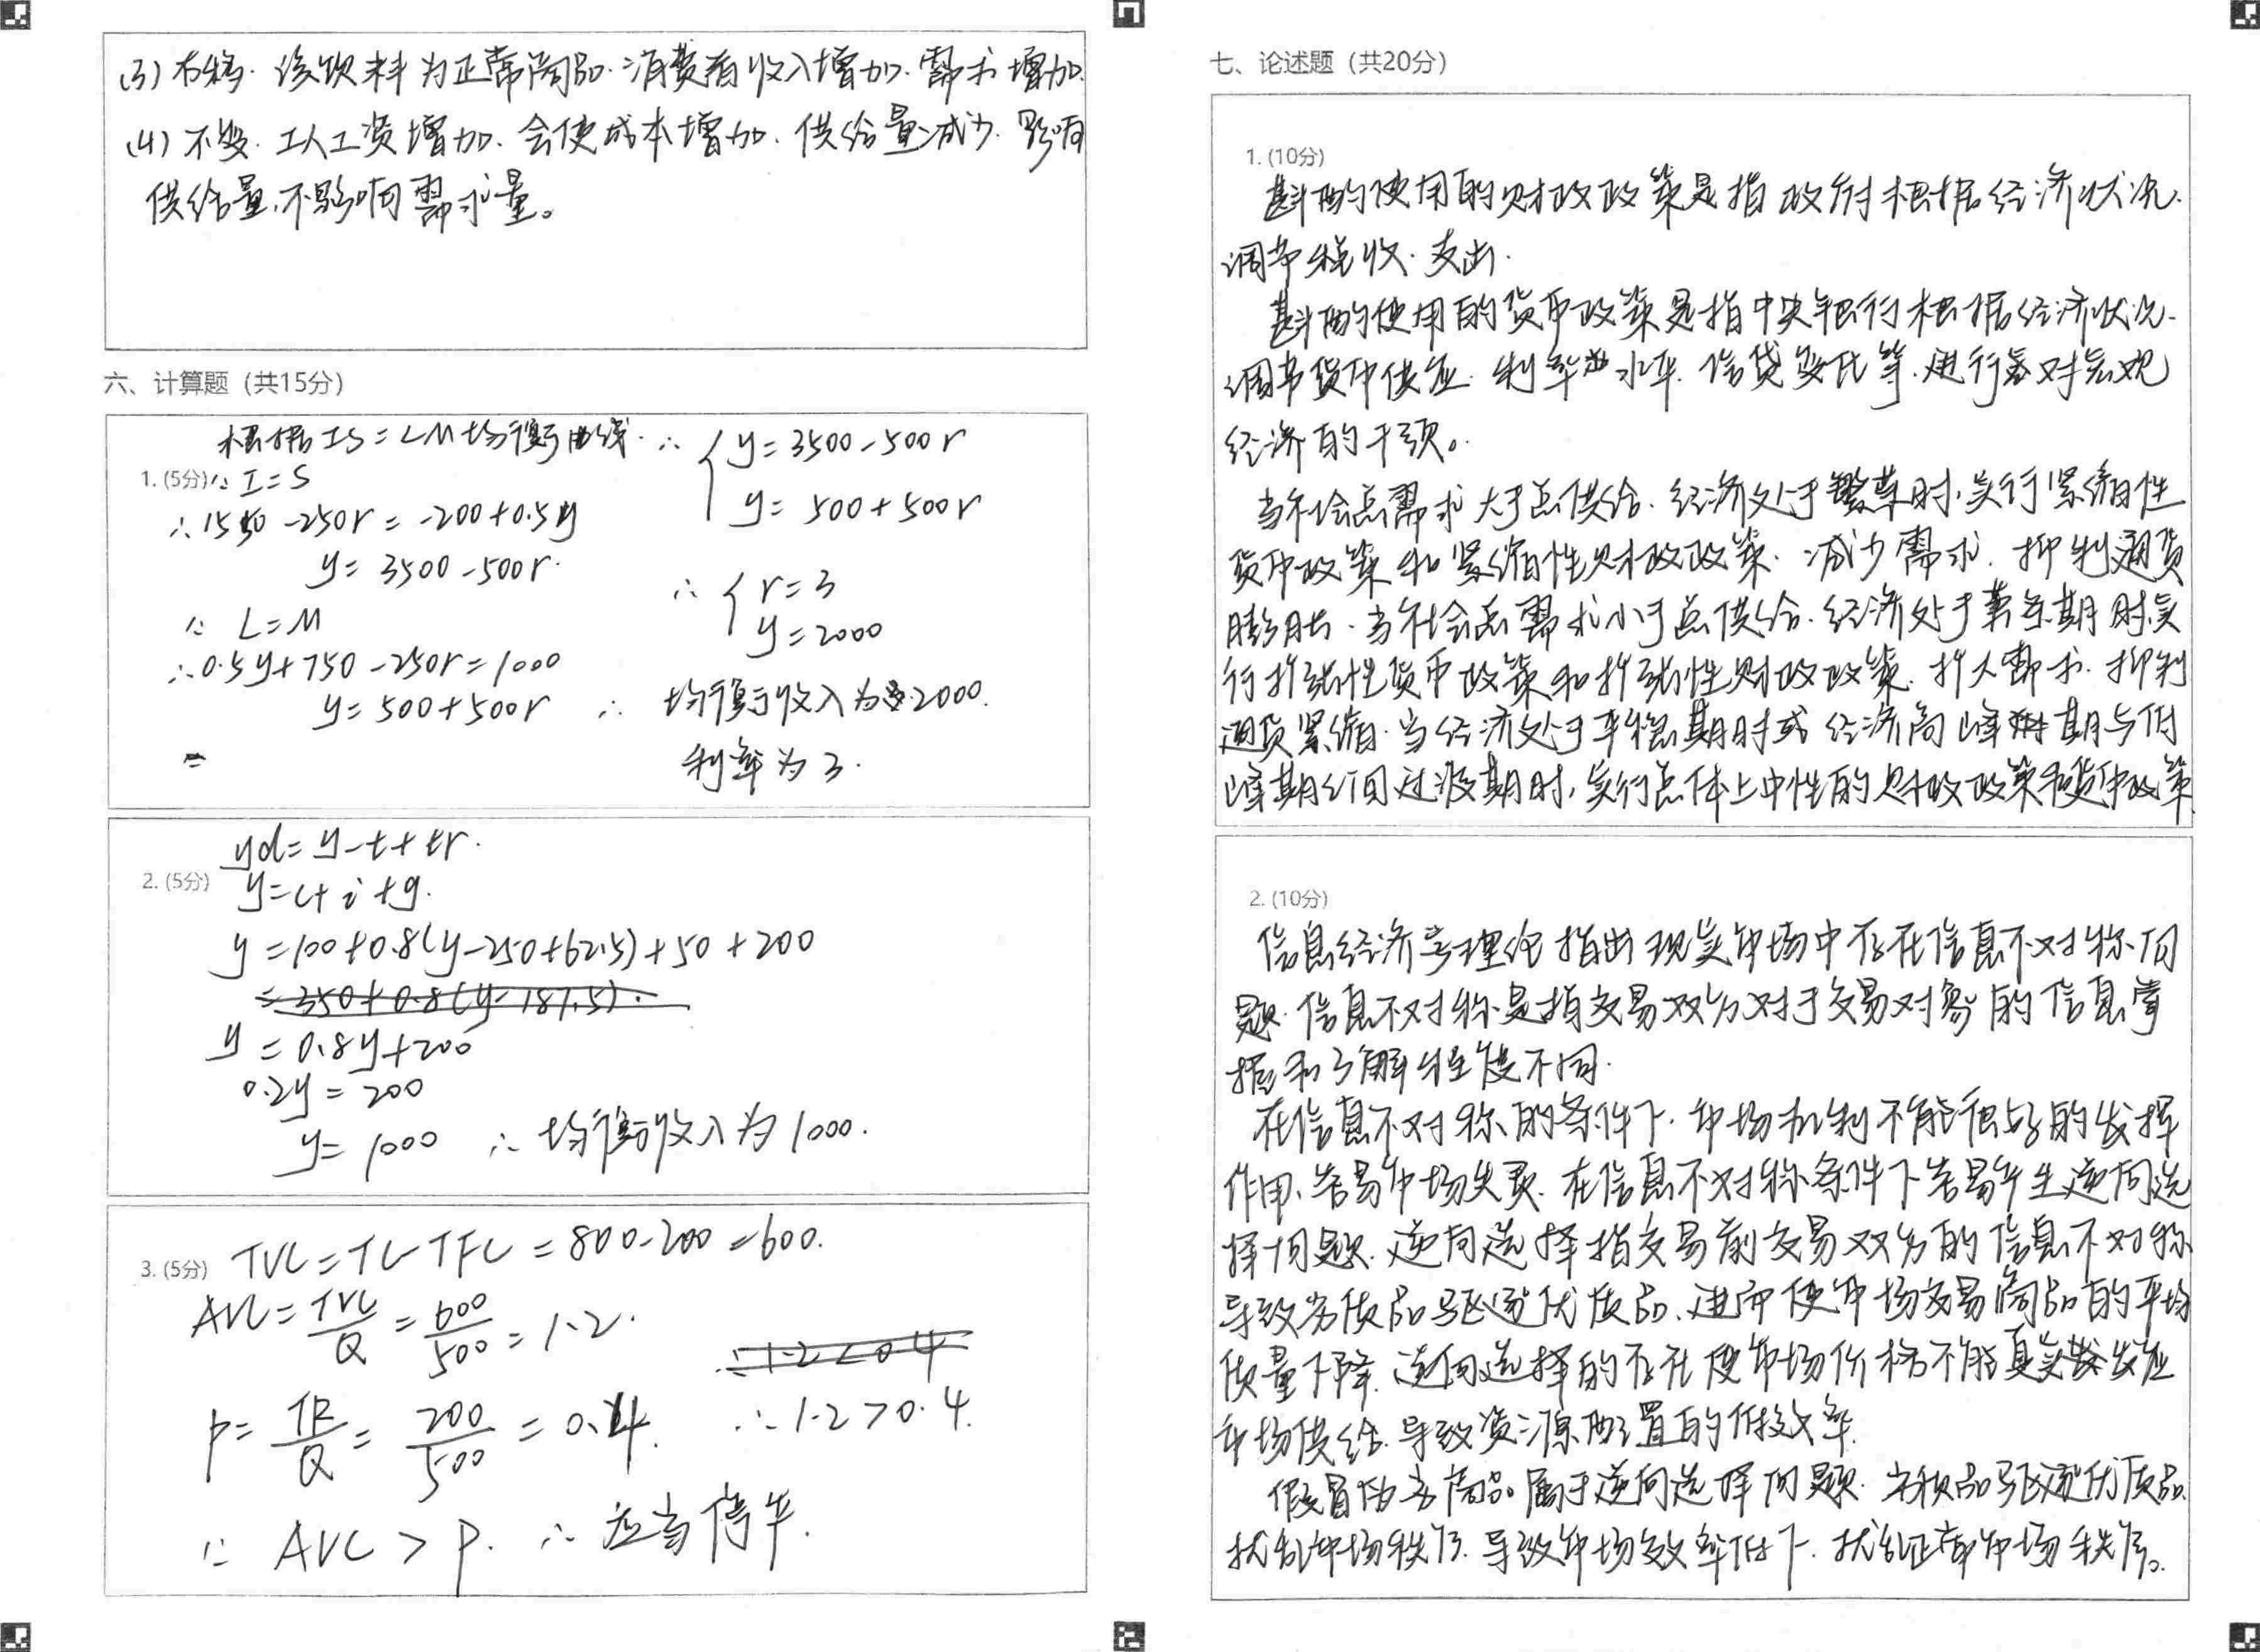 (3) 右移. 该饮料为正常商品. 消费者收入增加. 需求增加.
(4) 不变. 工人工资增加. 会使成本增加. 供给量减少. 影响
供给量,不影响需求量。
六、计算题（共15分）
根据IS=LM均衡曲线.
1. (5分) ∵ I=S
∴ 1550-250r=-200+0.5y
y=3500-500r.
∵ L=M
∴ 0.5y+750-250r=1000
y=500+500r
=
∴ { y=3500-500r
y=500+500r
∴ { r=3
y=2000
∴ 均衡收入为2000.
利率为3.
yd=y-t+tr.
2. (5分) y=c+i+g.
y=100+0.8(y-250+62.5)+50+200
=350+0.8(y-187.5).
y=0.8y+200
0.2y=200
y=1000 ∴ 均衡收入为1000.
3. (5分) TVC=TC-TFC=800-200=600.
AVC=TVC/Q=600/500=1.2.
∴1.2<0.4
P=TR/Q=200/500=0.4. ∴1.2>0.4.
∵ AVC>P. ∴ 应当停产.
七、论述题（共20分）
1. (10分)
斟酌使用的财政政策是指政府根据经济状况.
调节税收.支出.
斟酌使用的货币政策是指中央银行根据经济状况.
调节货币供应.利率水平.信贷变比等.进行对宏观
经济的干预。
当社会总需求大于总供给.经济处于繁荣时,实行紧缩性
货币政策和紧缩性财政政策.减少需求.抑制通货
膨胀.当社会总需求小于总供给.经济处于萧条期时,实
行扩张性货币政策和扩张性财政政策.扩大需求.抑制
通货紧缩.当经济处于平稳期时或经济高峰期与低
峰期之间过渡期时,实行总体上中性的财政政策和货币政策.
2. (10分)
信息经济学理论指出现实市场中存在信息不对称问
题.信息不对称是指交易双方对于交易对象的信息掌
握和了解程度不同.
在信息不对称的条件下.市场机制不能很好的发挥
作用、容易市场失灵.在信息不对称条件下容易产生逆向选
择问题.逆向选择指交易前交易双方的信息不对称
导致劣质品驱逐优质品.进而使市场交易商品的平均
质量下降.逆向选择的存在使市场价格不能真实反应
市场供给.导致资源配置的低效率.
假冒伪劣商品属于逆向选择问题.劣质品驱逐优质品.
扰乱市场秩序.导致市场效率低下.扰乱正常市场秩序。